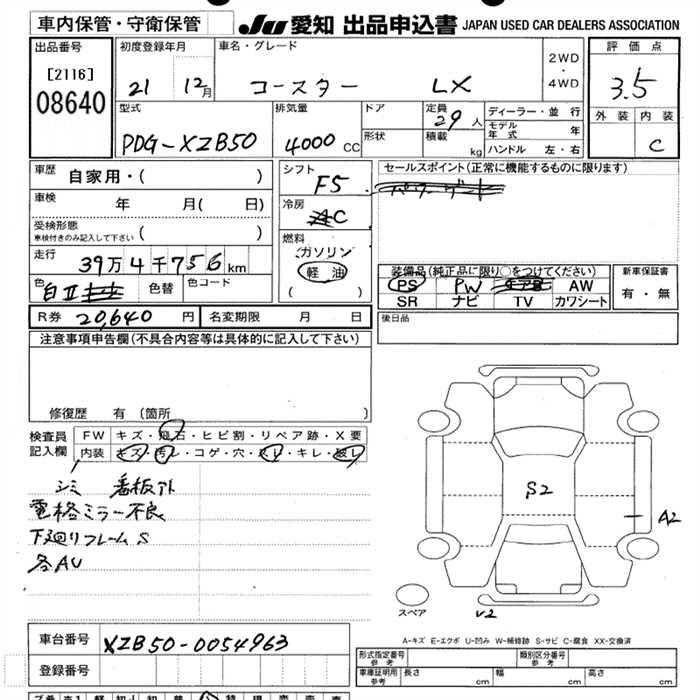 車内保管・守衛保管
JU 愛知 出品申込書 JAPAN USED CAR DEALERS ASSOCIATION
出品番号
[2116]
08640
初度登録年月
21 12月
車名・グレード
コースター LX
2WD
・
4WD
評価点
3.5
外装 内装
C
型式
PDG-XZB50
排気量
4000 CC
ドア
形状
定員 29 人
積載 kg
ディーラー・並行
モデル年式 年
ハンドル 左・右
車歴 自家用・( )
車検 年 月( 日)
受検形態
車検付きのみ記入して下さい ( )
走行
39万4千756km
色 白Ⅱ
色替
色コード
シフト
F5
冷房
AC
燃料
ガソリン
軽油
( )
セールスポイント(正常に機能するものに限ります)
装備品(純正品に限り○をつけてください)
PS PW AW
SR ナビ TV カワシート
新車保証書
有・無
R券 20,640 円
名変期限 月 日
後日品
注意事項申告欄(不具合内容等は具体的に記入して下さい)
修復歴 有(箇所 )
検査員
記入欄
FW キズ・飛石・ヒビ割・リペア跡・X要
内装 キズ・汚レ・コゲ・穴・スレ・キレ・破レ
シミ 看板外
電格ミラー不良
下廻りフレームS
各AU
S2
A2
スペア
V2
A-キズ E-エクボ U-凹み W-補修跡 S-サビ C-腐食 XX-交換済
車台番号 XZB50-0054963
登録番号
形式指定番号
参考
類別区分番号
参考
車庫証明用
参考
長さ cm 幅 cm 高さ cm